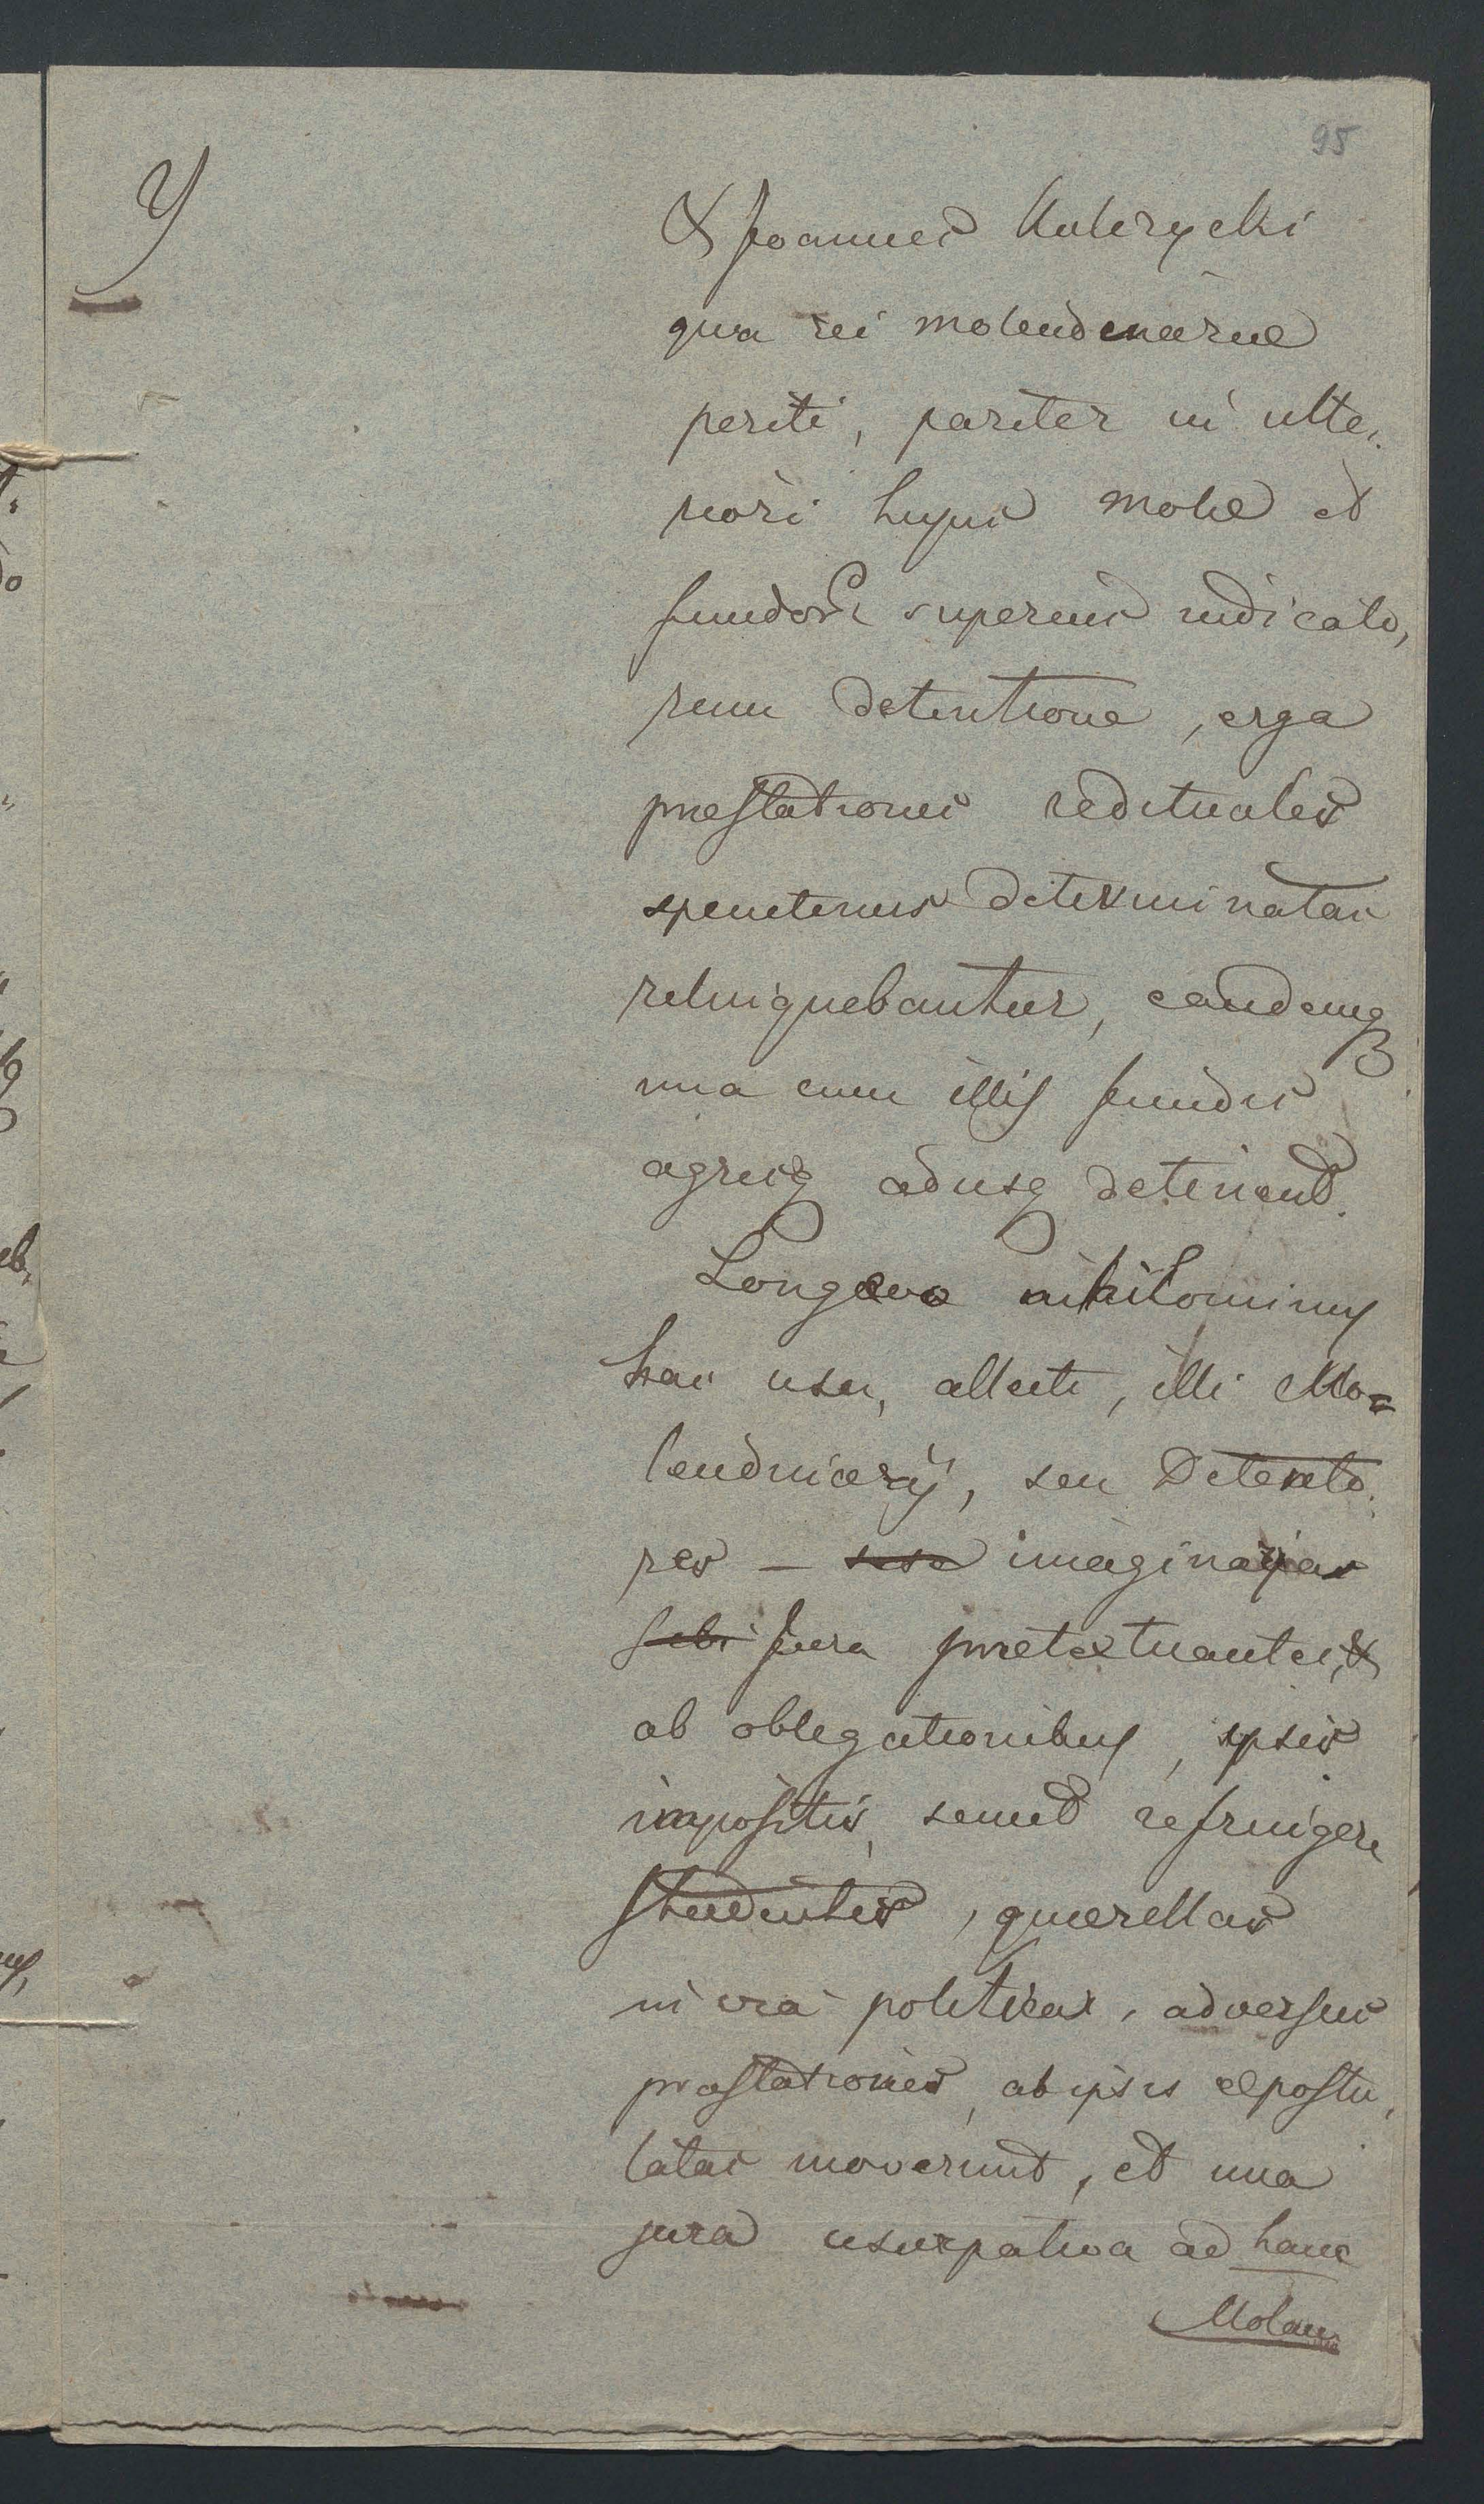 95
Y
& Joannes Kulczycki
qua rei molendinariae
periti, pariter in ulte,
riori hujus molae et
fundor superius indicato,
rum detentione, erga
praestationes redituales
specietenus determinatas
relinquebantur, eandemq
una cum illis fundis
agrisq adusq detinent.
Longaevo nihilominus
hac usu, allecti, illi Mo=
lendinarij, seu Detento,
res — sese imaginarias
sibi jura praetextuantes, &
ab obligationibus, ipsis
impositis, semet refringere
studentes, quaerellas
in via politica, adversus
praestationes, ab ipsis expostu,
latas moverunt, et una
jura usurpativa ad hanc
Molam